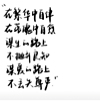 在繁华中自律
在落魄中自愈
谋生的路上
不抛弃良知
谋爱的路上
不丢失尊严